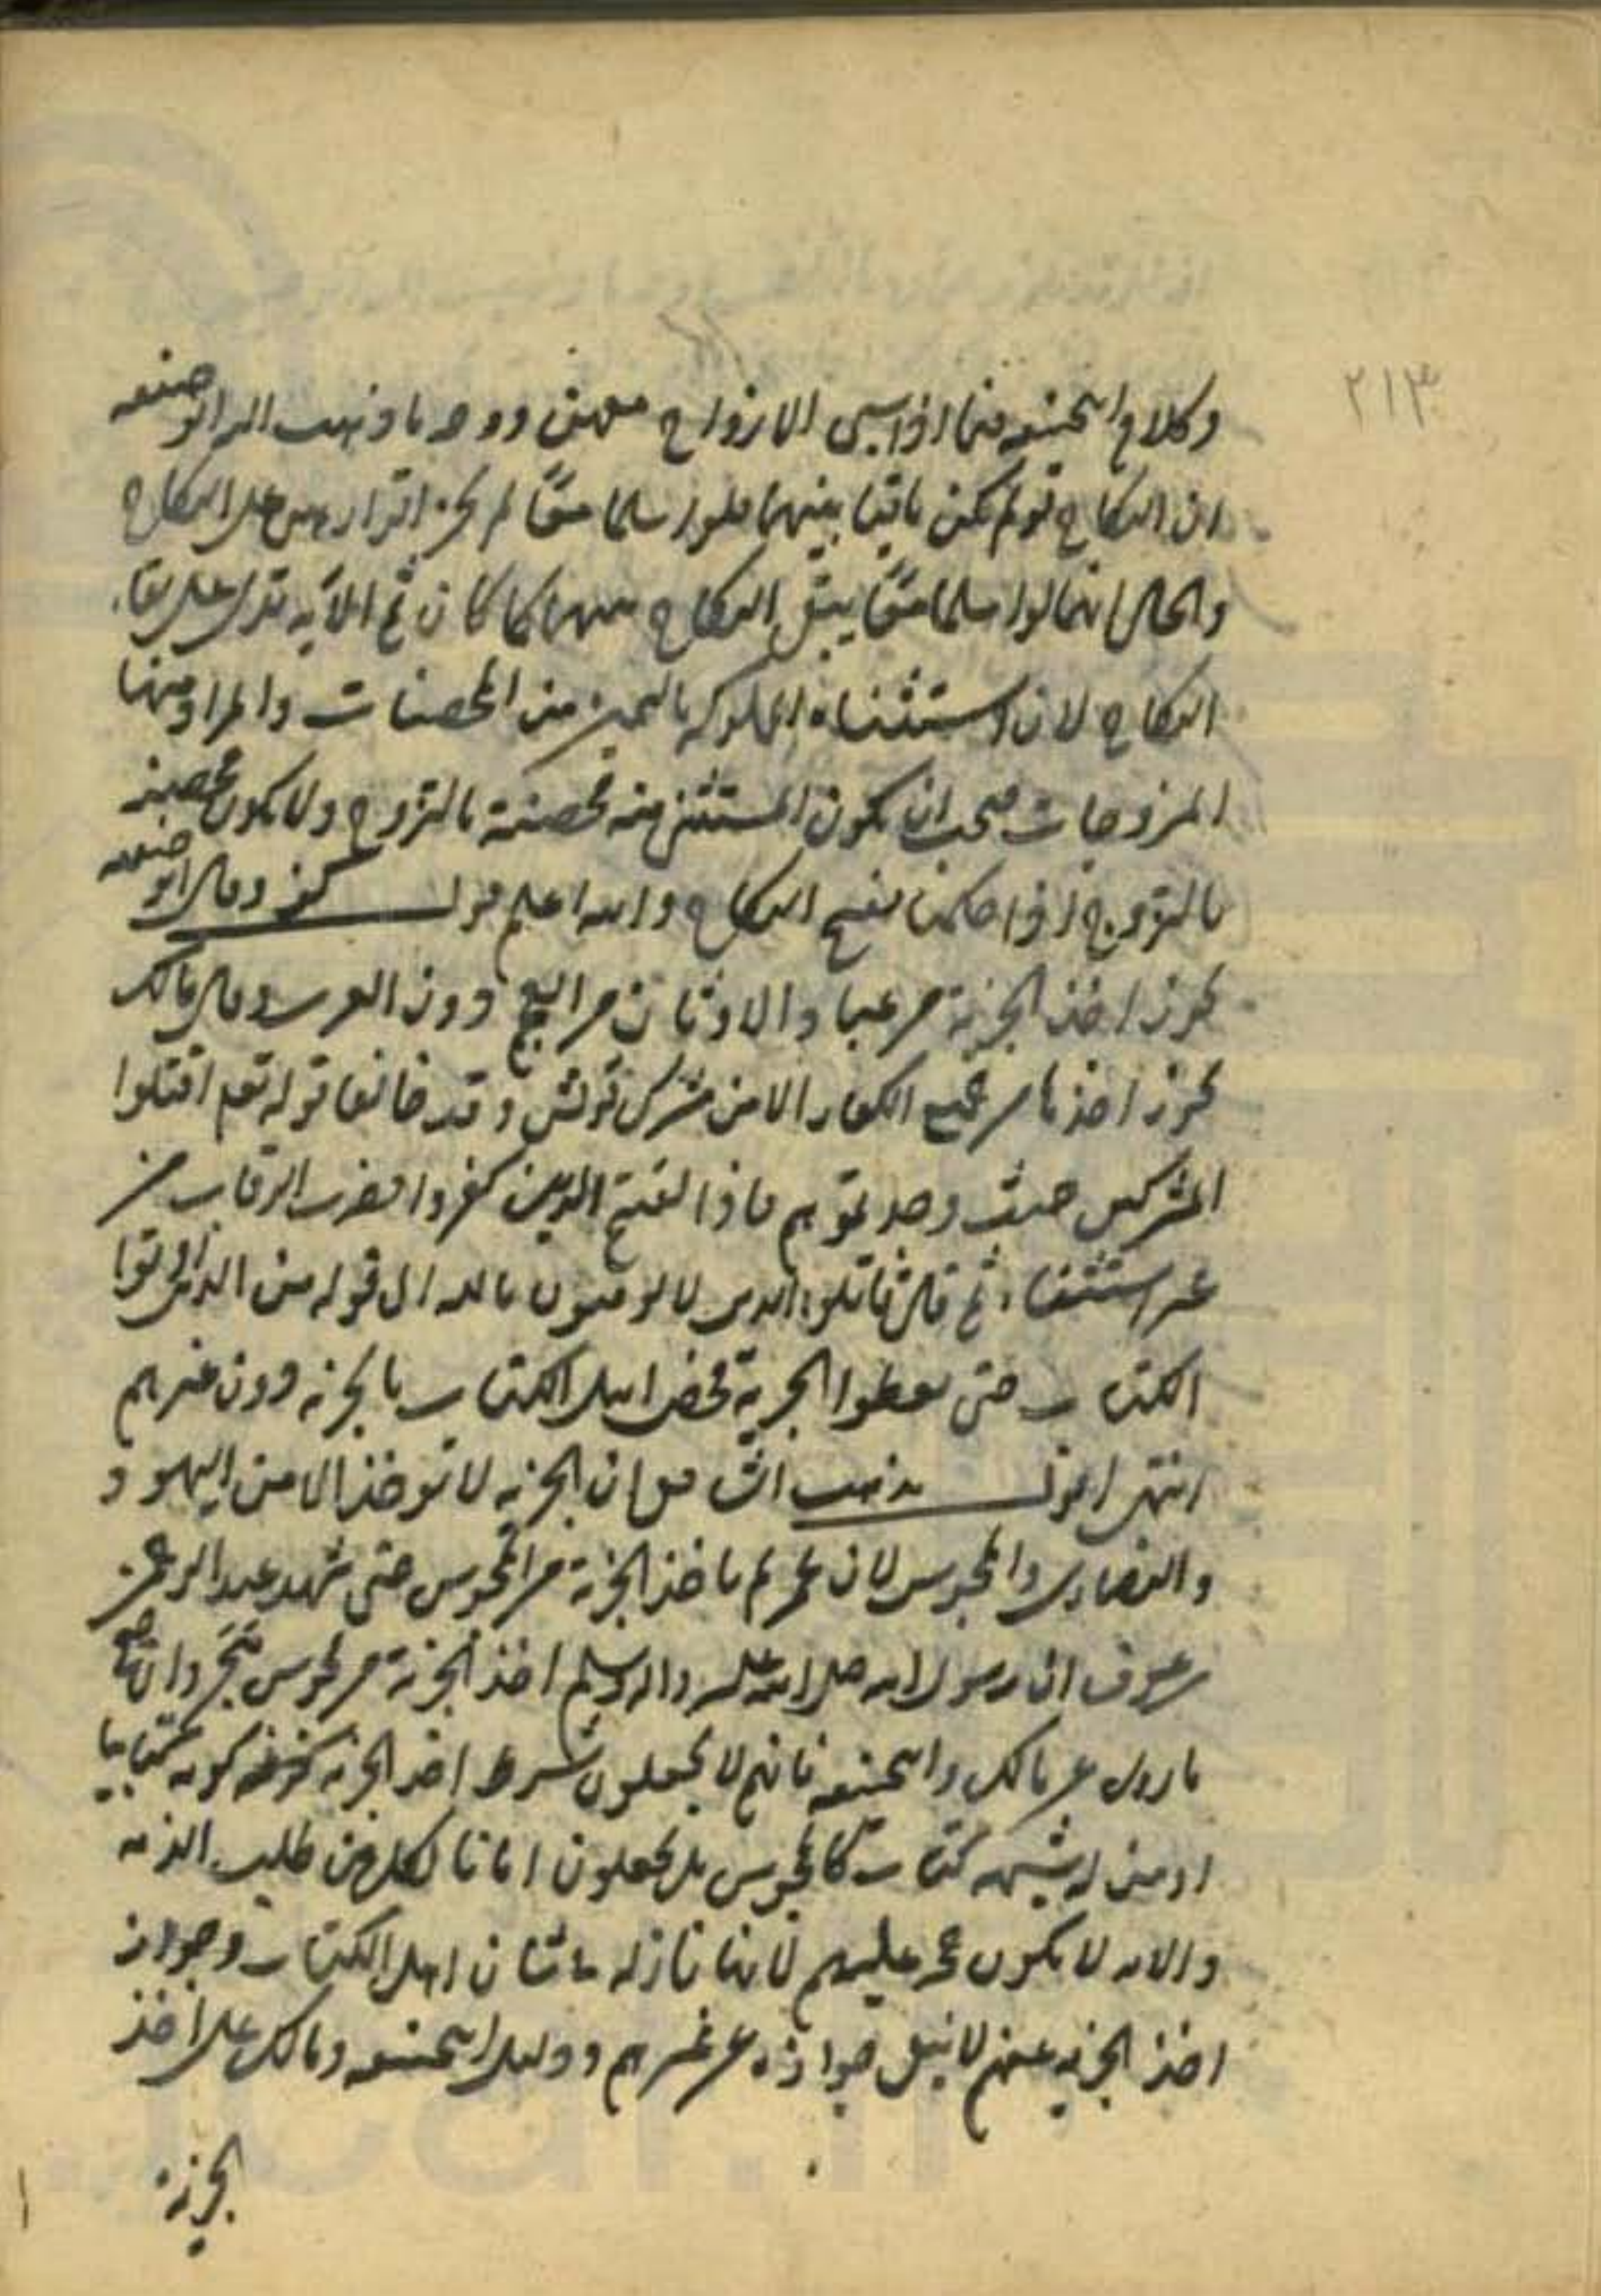 ٢١٣
وكلام ابي حنيفه فيما اذا سبى الازواج معهن ووجه ما ذهب اليه ابو حنيفه
ان النكاح لو لم يكن باقيا بينهما فلو اسلما معًا لم يجز اقرارهما على النكاح
والحال انهما لو اسلما معًا يبقى النكاح بينهما كما كان ثم الآية تدل على بقاء
النكاح لان استثناء المملوكه باليمين من المحصنات والمراد منها
المزوجات فيجب ان يكون المستثنى منه محصنة بالتزوج ولا يكون محصنة
بالتزوج اذا حكمنا بفسخ النكاح والله اعلم قوله وقال ابو حنيفه
يجوز اخذ الجزية من عباد الاوثان من العجم دون العرب وقال مالك
يجوز اخذها من جميع الكفار الا من مشركي قريش وقد خالفا قوله تعه اقتلوا
المشركين حيث وجدتموهم فاذا لقيتم الذين كفروا فضرب الرقاب من
غير استثناء ثم قال قاتلوا الذين لا يومنون بالله الى قوله من الذين اوتوا
الكتاب حتى يعطوا الجزية فخص اهل الكتاب بالجزيه دون غيرهم
انتهى اقول مذهب الشافعي ان الجزيه لا توخذ الا من اليهود و
والنصارى والمجوس لان عمر لم ياخذ الجزية من المجوس حتى شهد عبد الرحمن
بن عوف ان رسول الله صلى الله عليه واله وسلم اخذ الجزية من مجوس هجر وان صح
ما روى عن مالك وابي حنيفه فانهم لا يجعلون شرط اخذ الجزيه كونه كتابيا
او من له شبهه كتاب كالمجوس بل يجعلون امانا لكل من طلب الذمه
والايه لا يكون حجه عليهم لانها نازله في شان اهل الكتاب وجواز
اخذ الجزيه عنهم لا ينفى جوازه عن غيرهم ودليل ابي حنيفه ومالك على اخذ
الجزية